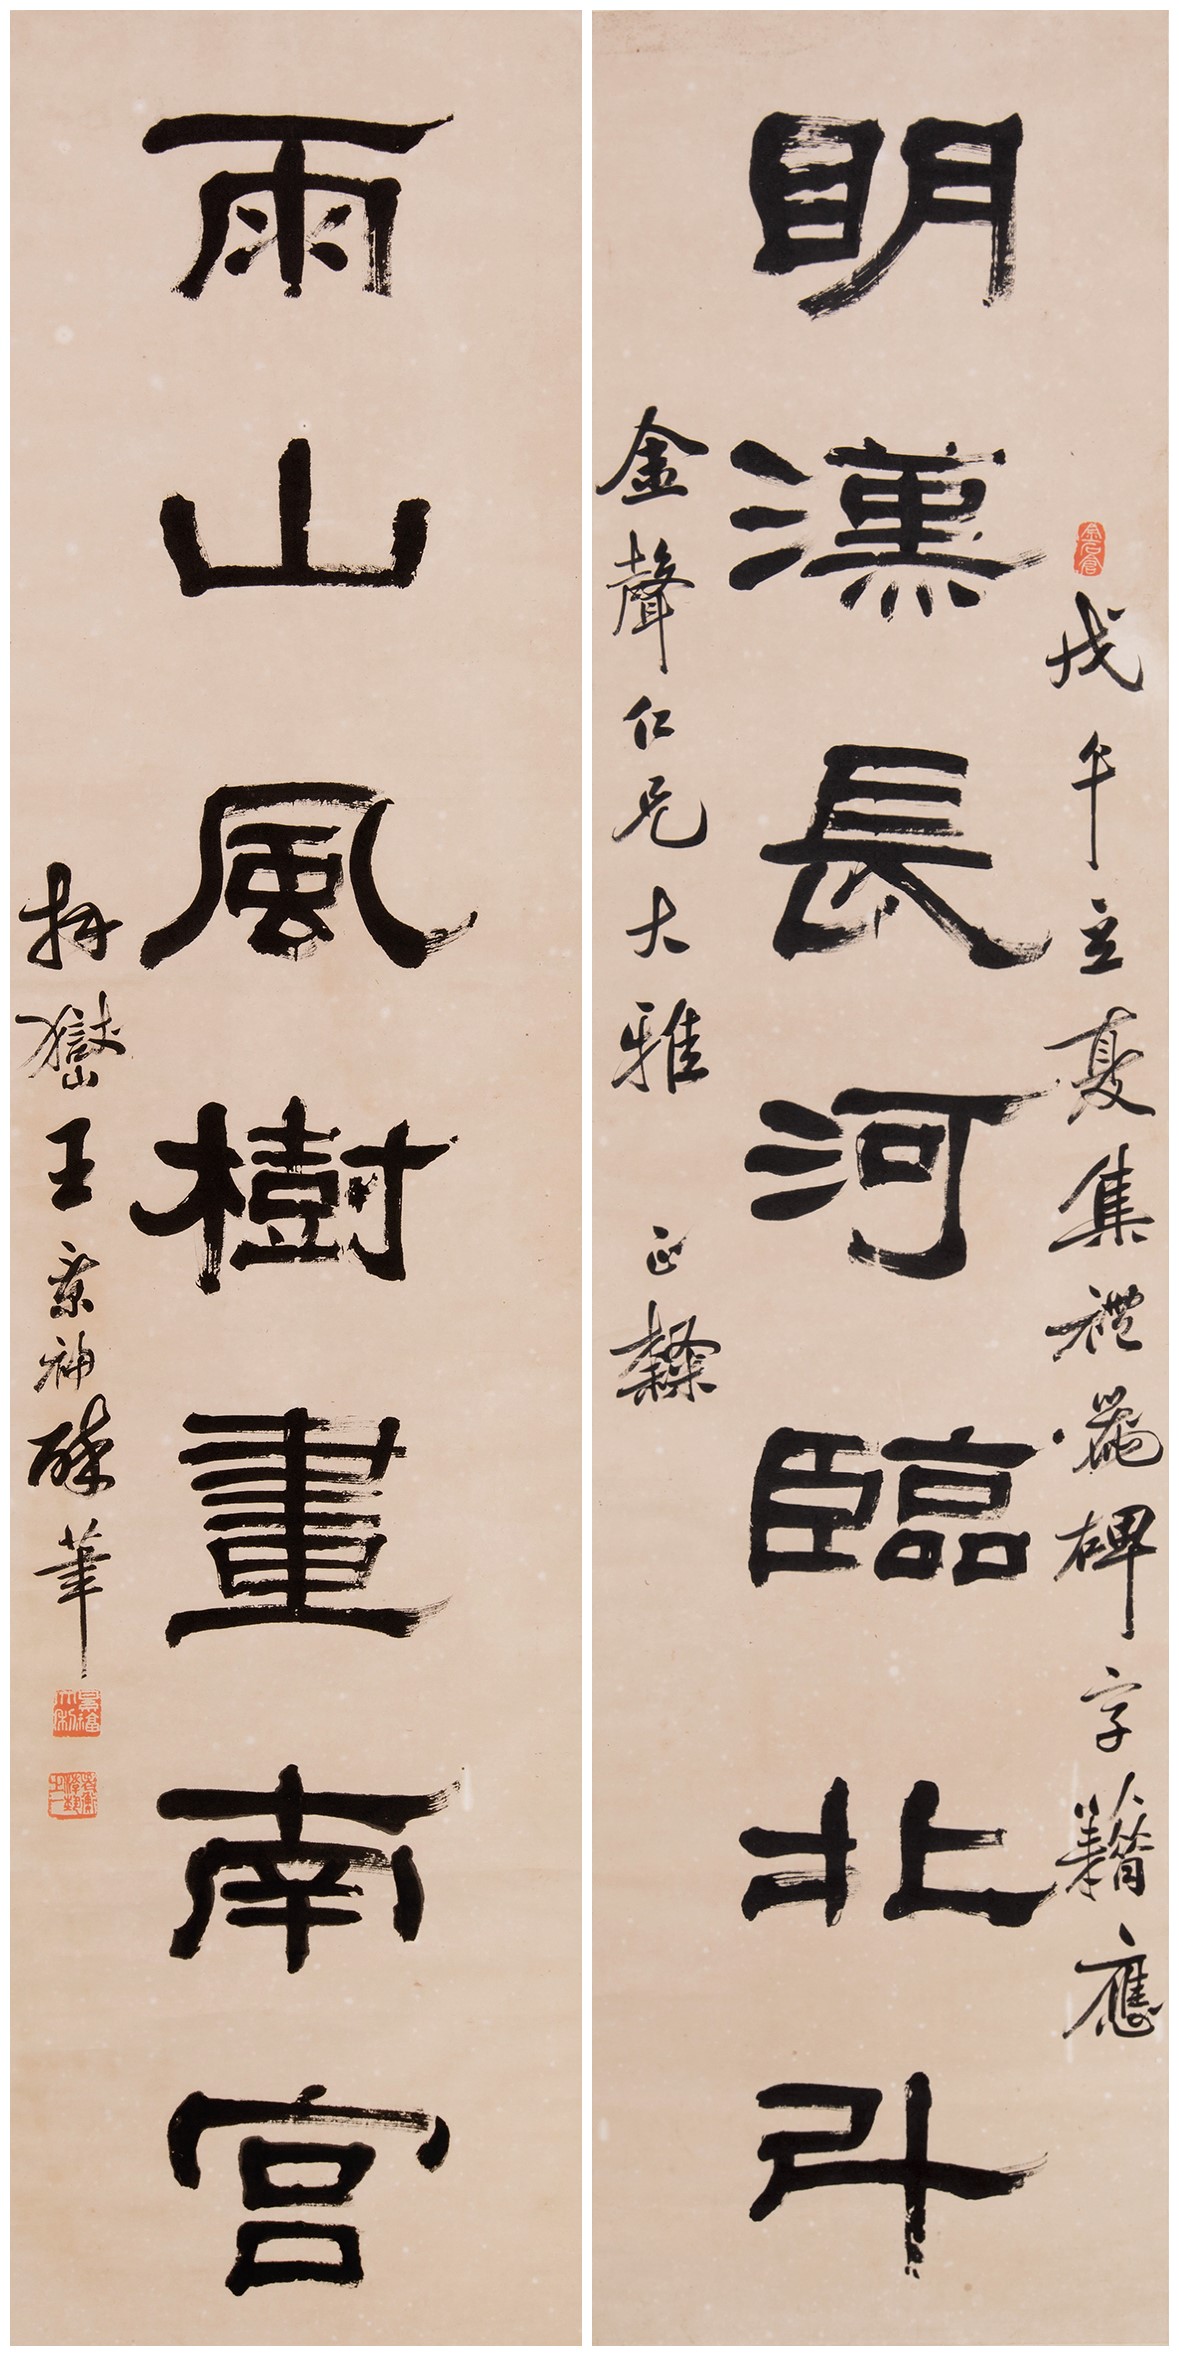 戊午立夏集禮器碑字藉應
明漢長河臨北斗
金聲仁兄大雅 正䊆
雨山風樹畫南宮
王景神 筆
金石齋